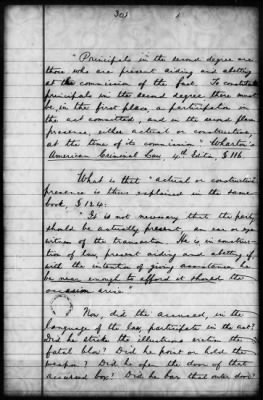 "Principals in the second degree are
those who are present aiding and abetting
at the commission of the fact. To constitute
principals in the second degree there must
be, in the first place, a participation in
the act committed, and in the second place
presence, either actual or constructive,
at the time of its commission" Wharton's
American Criminal Law, 4th Editn, § 116.
What is that "actual or constructive"
presence is thus explained in the same
book, § 124:
"It is not necessary that the party
should be actually present, an ear or eye
witness of the transaction. He is in construc-
tion of law, present aiding and abetting if,
with the intention of giving assistance, he
be near enough to afford it should the
occasion arise"
Now, did the accused, in the
language of the law, participate in the act?
Did he strike the illustrious victim the
fatal blow? Did he point or hold the
weapon? Did he open the door of that
accursed box? Did he bar that outer door?